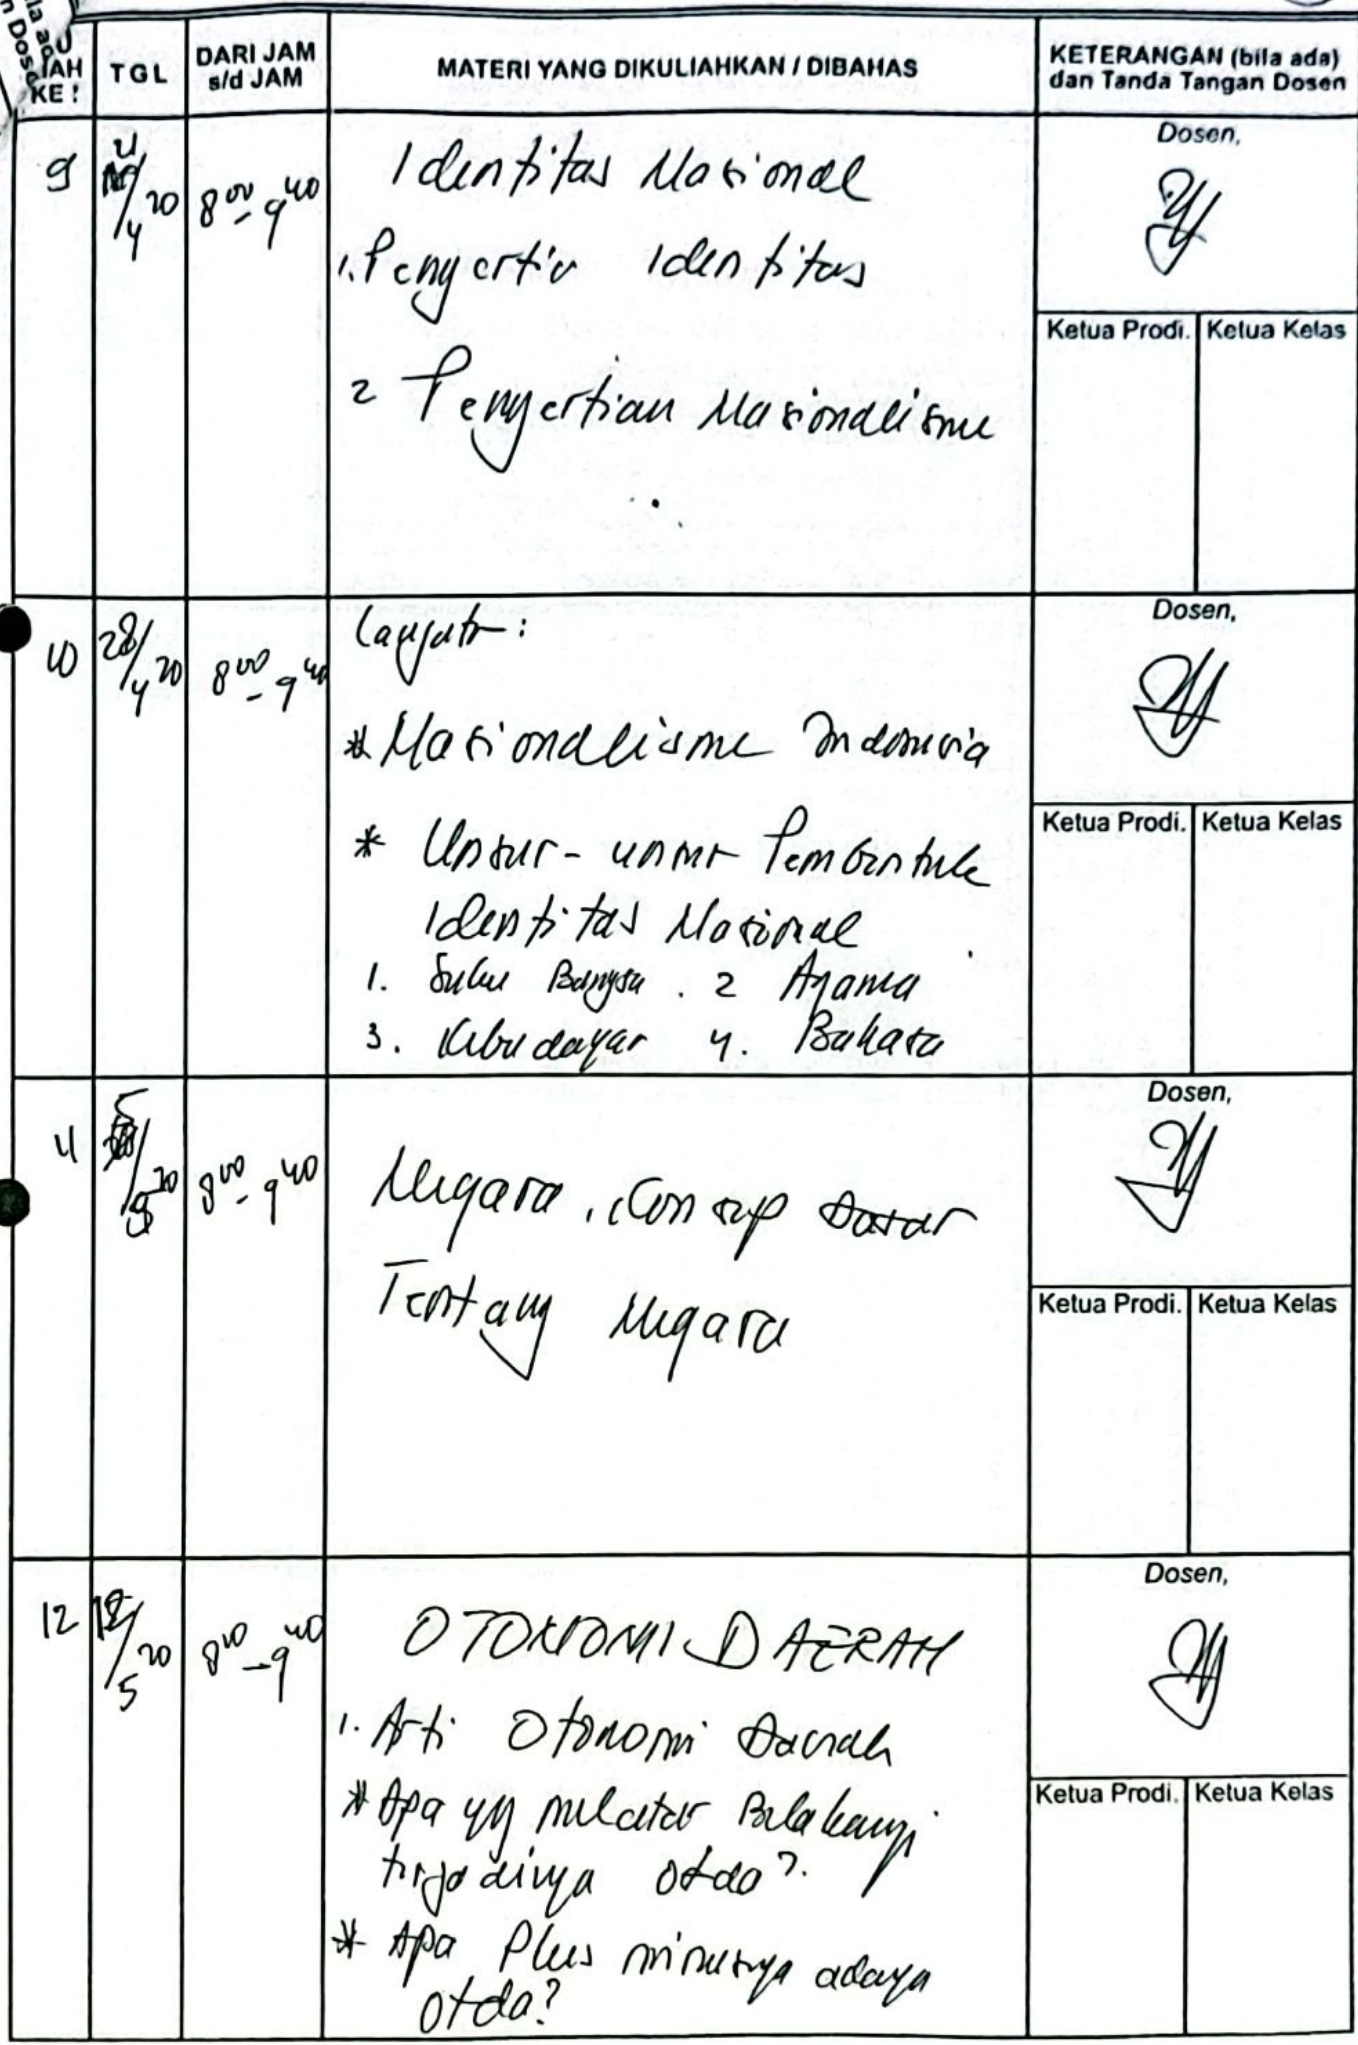 IAH
KE :
TGL
DARI JAM
s/d JAM
MATERI YANG DIKULIAHKAN / DIBAHAS
KETERANGAN (bila ada)
dan Tanda Tangan Dosen
9
/4 20
8 00 - 9 40
Identitas Nasional
1. Pengertia Identitas
2 Pengertian Nasionalisme
Dosen,
Ketua Prodi.
Ketua Kelas
10
28/4 20
8 00 - 9 40
Lanjutn :
* Nasionalisme Indonesia
* Unsur - unsur Pembentuk
Identitas Nasional
1. Suku Bangsa . 2 Agama
3. Kebudayaan 4. Bahasa
Dosen,
Ketua Prodi.
Ketua Kelas
11
5/5 20
8 00 - 9 40
Negara, Konsep Dasar
Tentang Negara
Dosen,
Ketua Prodi.
Ketua Kelas
12
12/5 20
8 00 - 9 40
OTONOMI DAERAH
1. Arti Otonomi Daerah
* Apa yg melatar Belakangi
terjadinya otda ?.
* Apa Plus minusnya adaya
otda?
Dosen,
Ketua Prodi.
Ketua Kelas